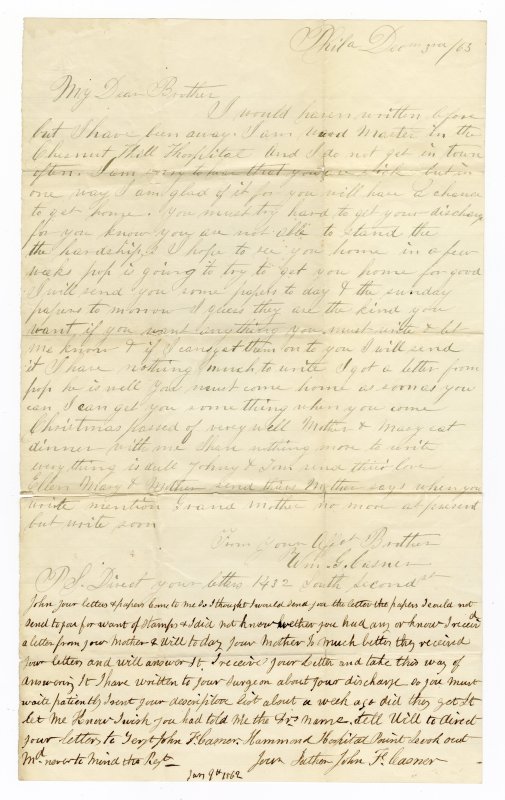 Phila Decm 3rd /63
My Dear Brother
I would haven written before
but I have been away. I am Ward Master in the
Chesnut Hill Hospital and I do not get in town
often. I am sorry to hear that you are sick but in
one way I am glad of it for you will have a chance
to get home. You must try hard to get your discharge
for you know you are not able to stand the
the hardship. I hope to see you home in a few
weaks pop is going to try to get you home for good
I will send you some papers to day & the sunday
papers to morrow I guess they are the kind you
want, if you want anything you must write & let
me know & if I can get them on to you I will send
it I have nothing much to write I got a letter from
pop he is well You must come home as soon as you
can, I can get you some thing when you come
Christmas passed of very well Mother & Mary eat
dinner with me I have nothing more to write
every thing is dull Johny & Tom send their love
Ellen Mary & Mother send theirs Mother says when you
write mention Grand mother no more at present
but write soon
From your Afct Brother
Wm. G. Casner
P.S. Direct your letters 1432 South Second st
John your letters & papers Come to me So I thought I would Send you the letter the papers I could not
Send to you for want of Stamps & I did not know wether you had any or know I receivd
a letter from your Mother & Will to day your Mother Is much better they received
your letters and will answer It. I receivd your Letter and take this way of
answering It I have written to your Surgeon about your discharge so you must
waite patiently I sent your descriptive list about a week ago did they get It
let Me Know I wish you had told Me the Drs Name. tell Will to direct
your letter to Sergt John F. Casner Hammond Hospital Point Look out
Md never to Mind the Regt
Your Father John F. Casner
Jan 9th 1862